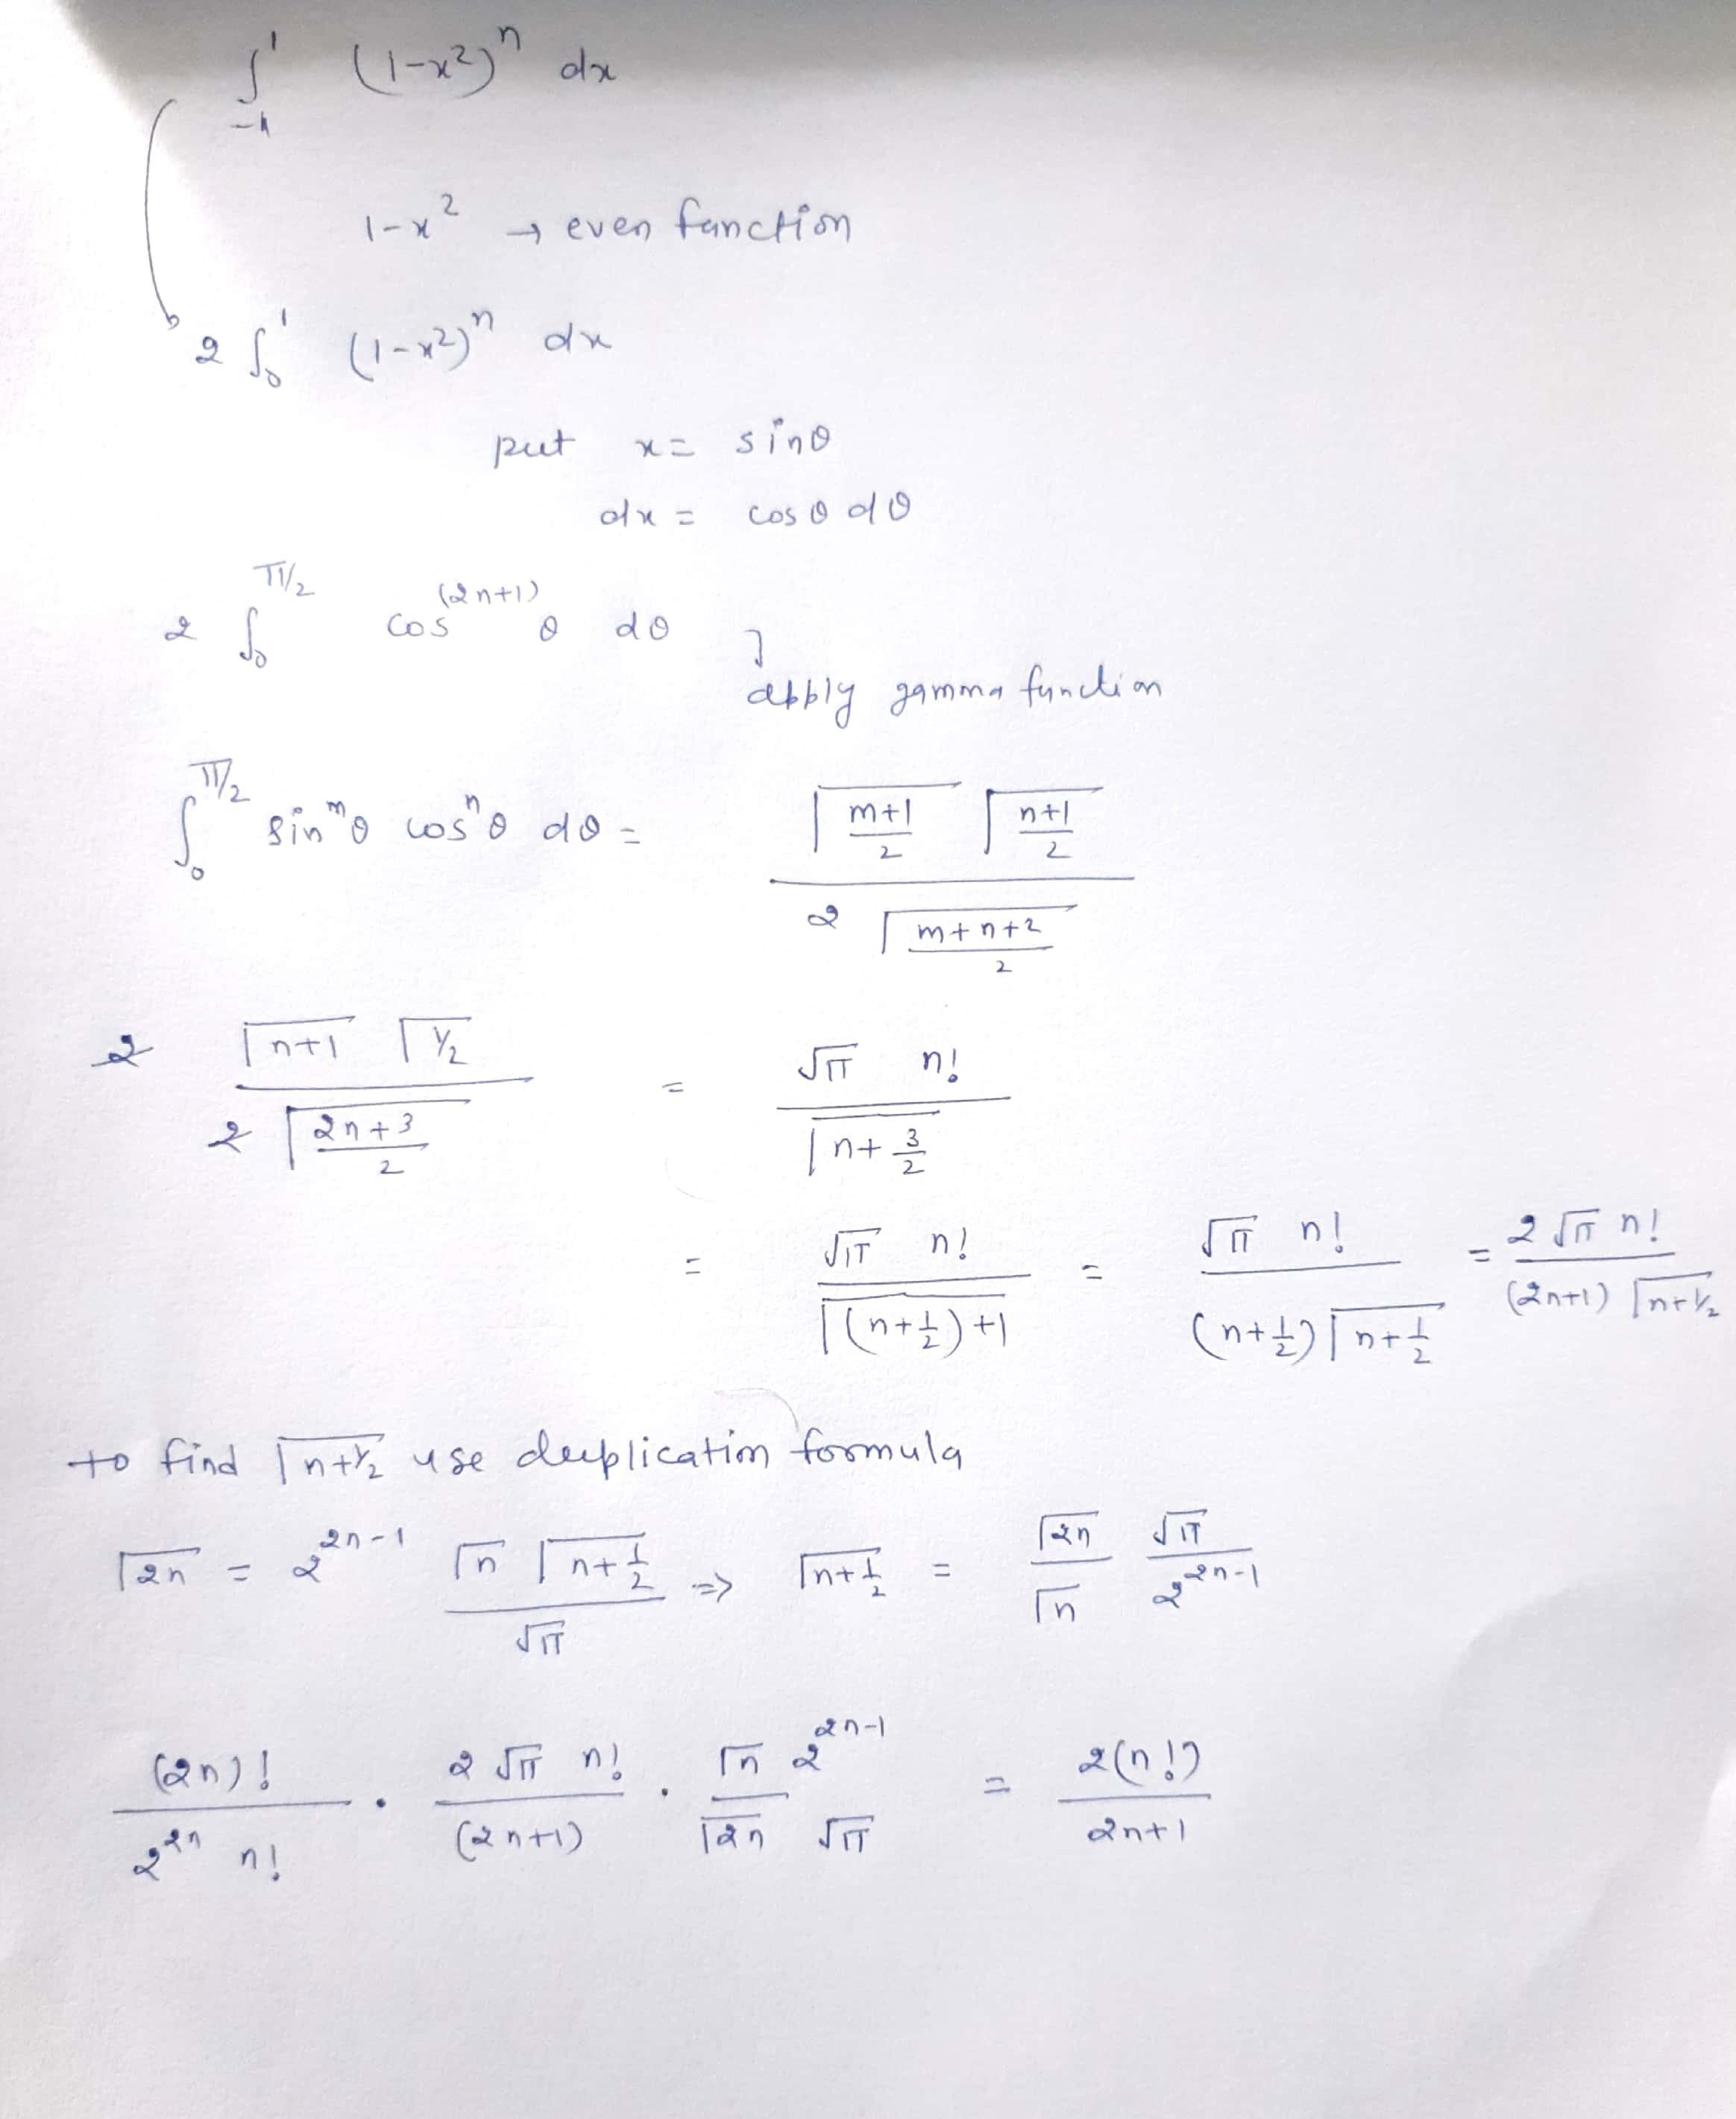 ∫₋₁¹ (1-x²)ⁿ dx
1-x² → even function
2 ∫₀¹ (1-x²)ⁿ dx
put x = sinθ
dx = cosθ dθ
2 ∫₀^(π/2) cos^(2n+1) θ dθ ]
apply gamma function
∫₀^(π/2) sin^m θ cos^n θ dθ = Γ((m+1)/2) Γ((n+1)/2) / (2 Γ((m+n+2)/2))
2 Γ(n+1) Γ(1/2) / (2 Γ((2n+3)/2)) = √π n! / Γ(n+3/2)
= √π n! / Γ((n+1/2)+1) = √π n! / ((n+1/2) Γ(n+1/2)) = 2√π n! / ((2n+1) Γ(n+1/2))
to find Γ(n+1/2) use duplication formula
Γ(2n) = 2^(2n-1) Γ(n) Γ(n+1/2) / √π => Γ(n+1/2) = Γ(2n)/Γ(n) √π / 2^(2n-1)
(2n)! / (2^(2n) n!) . 2√π n! / (2n+1) . Γ(n) 2^(2n-1) / (Γ(2n) √π) = 2(n!) / 2n+1